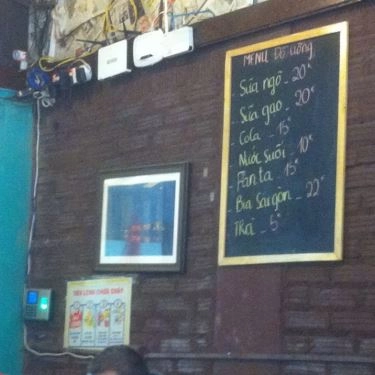 MENU Đồ uống
Sữa ngô - 20k
Sữa gạo - 20k
Cola - 15k
- Nước suối - 10k
- Fanta - 15k
- Bia Sài gòn - 22k
Trà - 5k
TIÊU LỆNH CHỮA CHÁY